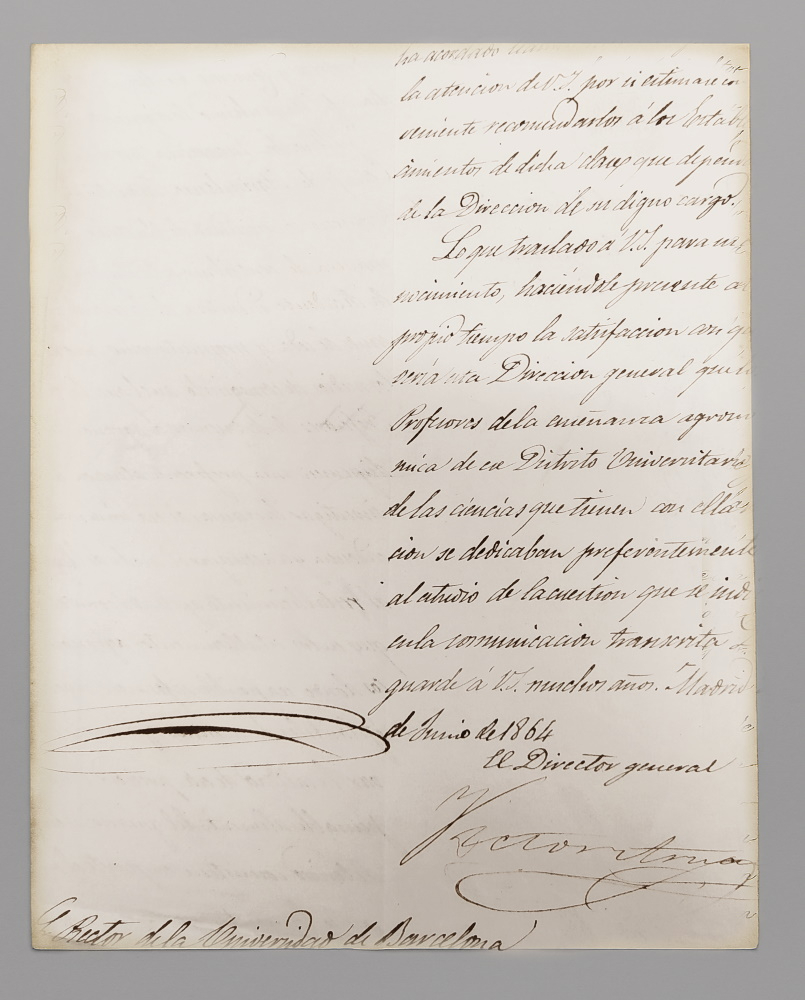 ha acordado
la atencion de V.I. por si estimare con
veniente recomendarlos á los Establ
cimientos de dicha clase que depen
de la Direccion de su digno cargo.
Lo que traslado á V.I. para su
nocimiento, haciéndole presente al
propio tiempo la satisfaccion con q
veria esta Direccion general que l
Profesores de la enseñanza agronó
mica de ese Distrito Universitario
de las ciencias que tienen con ella
cion se dedicaban preferentemente
al estudio de la cuestion que se indi
en la comunicacion transcrita
guarde á V.I. muchos años. Madrid
de Junio de 1864
El Director general
Victor Arnau
Rector de la Universidad de Barcelona